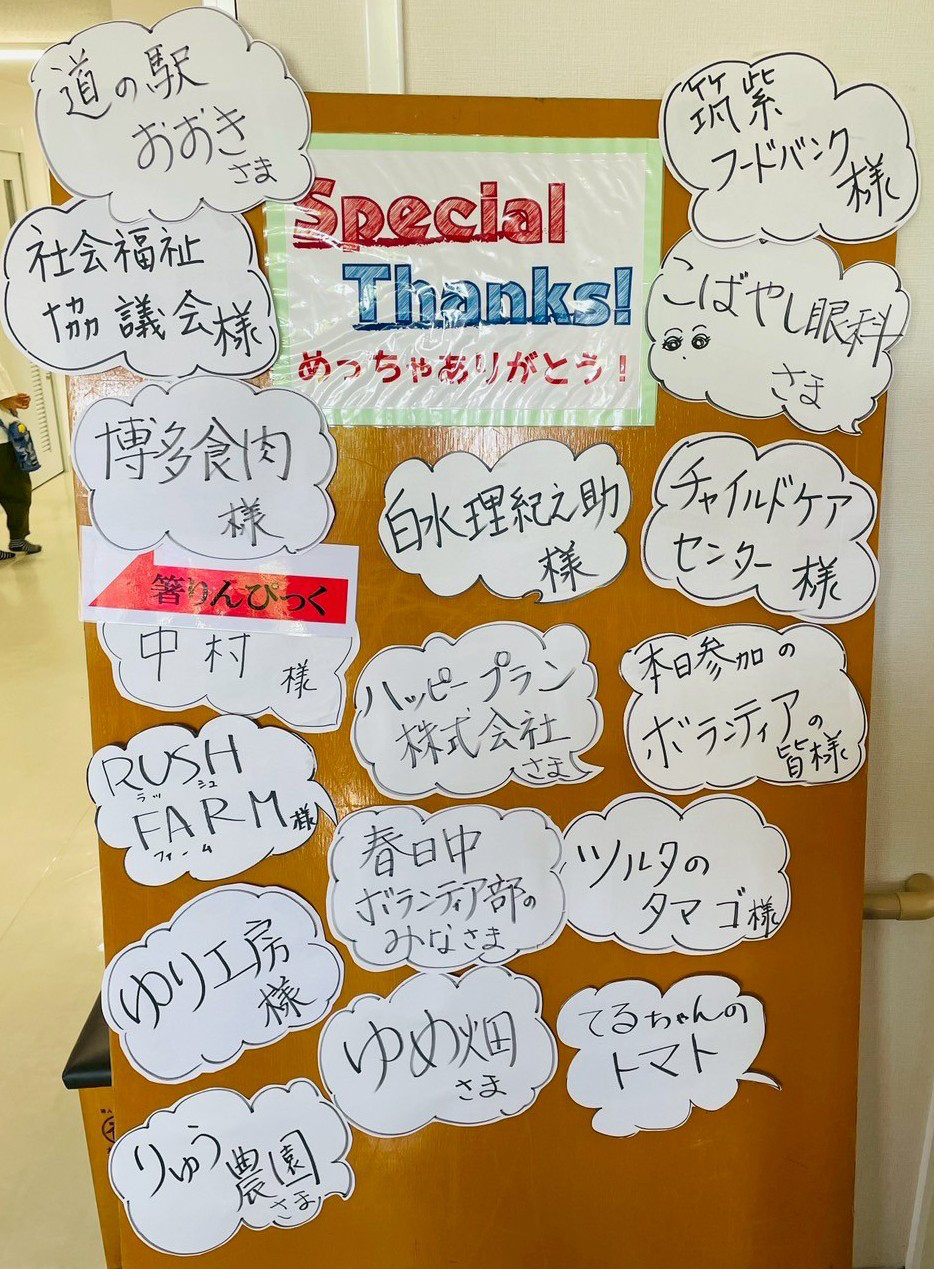 道の駅
おおき
さま
社会福祉
協議会様
博多食肉
様
箸りんぴっく
中村
様
RUSH
ラッシュ
FARM様
ファーム
ゆり工房
様
りゅう農園
さま
Special
Thanks!
めっちゃありがとう!
白水理紀之助
様
ハッピープラン
株式会社
さま
春日中
ボランティア部の
みなさま
ゆめ畑
さま
筑紫
フードバンク
様
こばやし眼科
さま
チャイルドケア
センター様
本日参加の
ボランティアの
皆様
ツルタの
タマゴ様
てるちゃんの
トマト